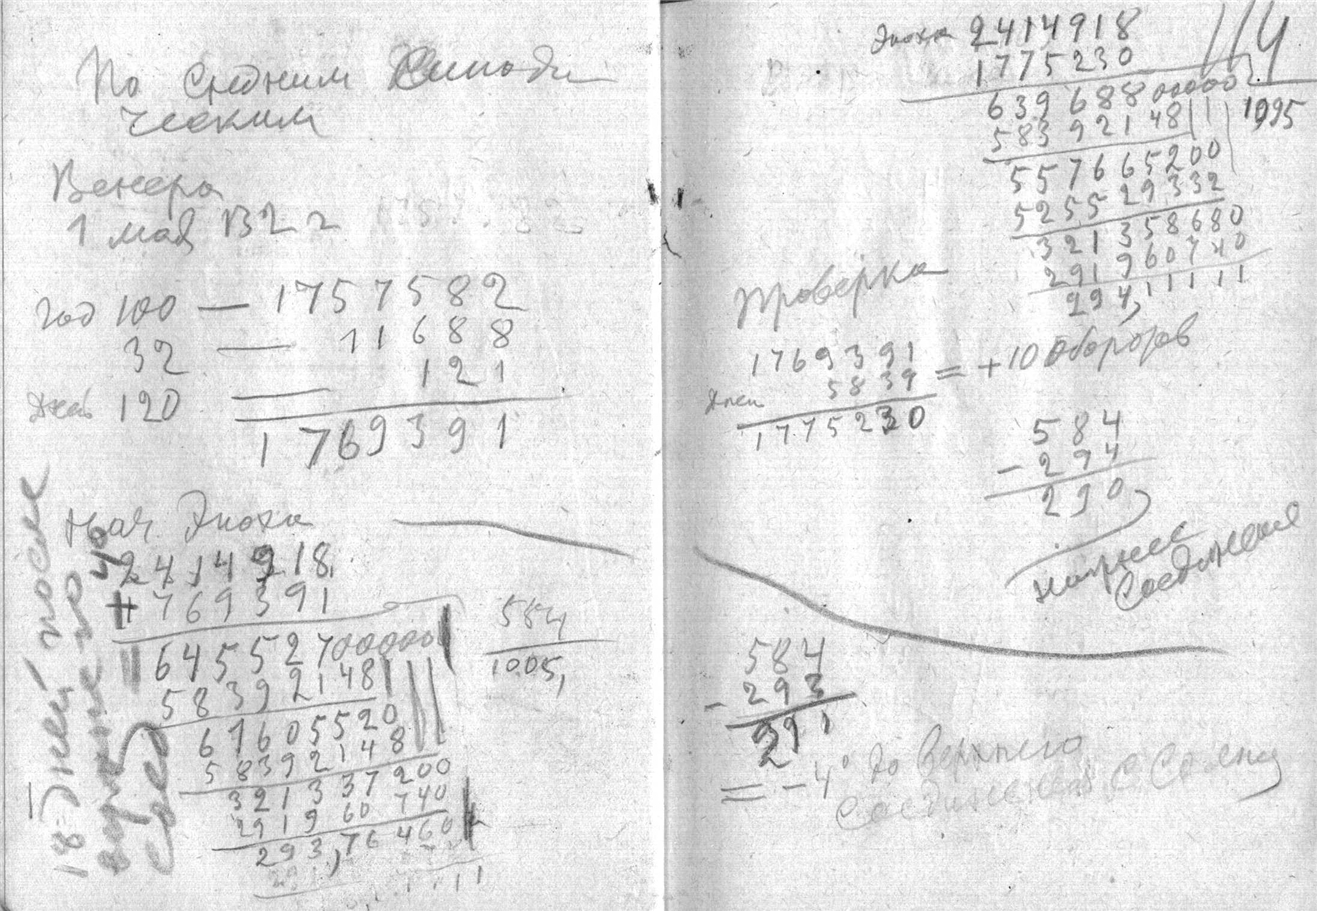 По Средним Синоди
ческим
Венера
1 мая 132 г
Год 100 — 1757582
32 — 11688
Дней 120 = 121
1769391
Нач Эпоха
2414918
+769391
= 6455270000
58392148
61605520
58392148
321337200
291960740
293,76460
584
1005,
18 Дней после
Эпоха 2414918
1775230
63968800000
58392148
557665200
525529332
321358680
291960740
294,11111
584
1095
Проверка
1769391
Дней 5839
1775230
= +10 оборотов
584
- 294
290
нижнее
Соединения
584
- 293
291
= -4° до верхнего
Соединения с Солнц